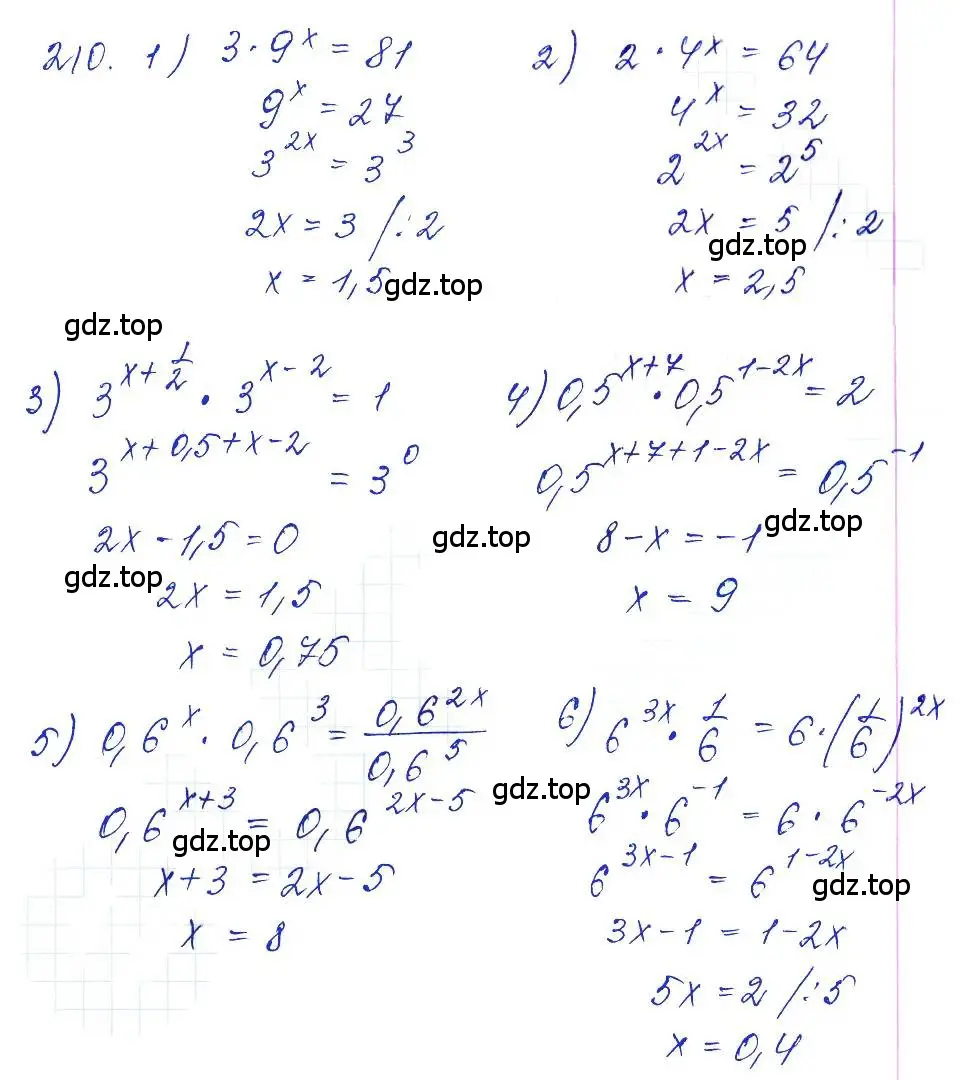 210. 1) 3·9^x = 81
9^x = 27
3^{2x} = 3^3
2x = 3 /:2
x = 1,5
gdz.top
2) 2·4^x = 64
4^x = 32
2^{2x} = 2^5
2x = 5 /:2
gdz.top
x = 2,5
gdz.top
3) 3^{x+\frac{1}{2}} · 3^{x-2} = 1
3^{x+0,5+x-2} = 3^0
2x - 1,5 = 0
gdz.top
gdz.top
2x = 1,5
x = 0,75
4) 0,5^{x+7} · 0,5^{1-2x} = 2
0,5^{x+7+1-2x} = 0,5^{-1}
gdz.top
8 - x = -1
x = 9
5) 0,6^x · 0,6^3 = \frac{0,6^{2x}}{0,6^5}
0,6^{x+3} = 0,6^{2x-5}
gdz.top
x + 3 = 2x - 5
x = 8
6) 6^{3x} · \frac{1}{6} = 6·(\frac{1}{6})^{2x}
gdz.top
6^{3x} · 6^{-1} = 6 · 6^{-2x}
6^{3x-1} = 6^{1-2x}
gdz.top
3x - 1 = 1 - 2x
5x = 2 /:5
x = 0,4